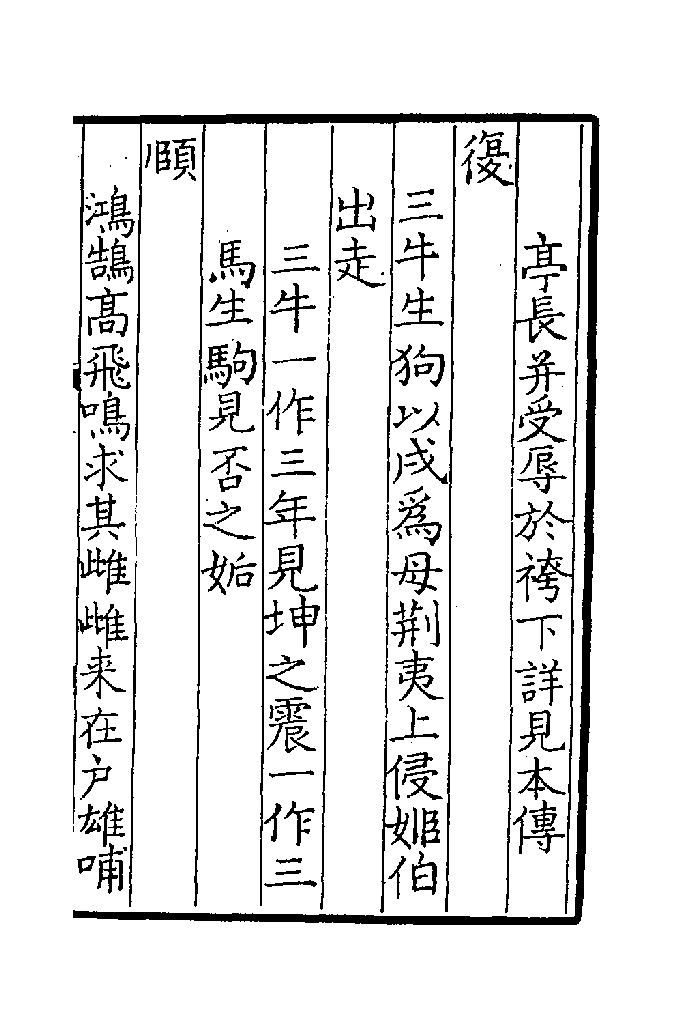 亭長并受辱於袴下詳見本傳
復
三牛生狗以戌爲母荆夷上侵姬伯
出走
三牛一作三年見坤之震一作三
馬生駒見否之姤
頤
鴻鵠高飛鳴求其雌雌来在户雄哺